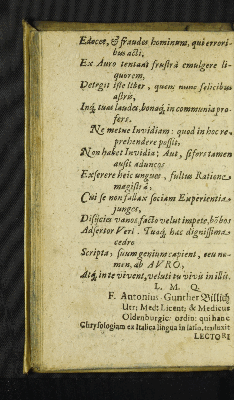 Edocet, & fraudes hominum, qui errori-
bus acti,
Ex Auro tentant frustrà emulgere li-
quorem,
Detegit iste liber, quem nunc felicibus
astris,
Inq́ tuas laudes, bonaq́ in communia pro-
fers.
Ne metue Invidiam: quod in hoc re-
prehendere possit,
Non habet Invidia; Aut, si fors tamen
ausit aduncos
Exserere heic ungues, fultus Ratione
magistrâ,
Cui se non fallax sociam Experientia
junget,
Disjicies vanos facto velut impete, bombos
Adsertor Veri. Tuaq́, hac dignissima
cedro
Scripta, suum genium capient, seu nu-
men, ab AVRO,
Atq́, in te vivent, veluti tu vivis in illis.
L. M. Q.
F. Antonius Gunther Billich
Utr: Med: Licent: & Medicus
Oldenburgic: ordin: qui hanc
Chrysologiam ex Italica lingua in latin. traduxit
LECTORI